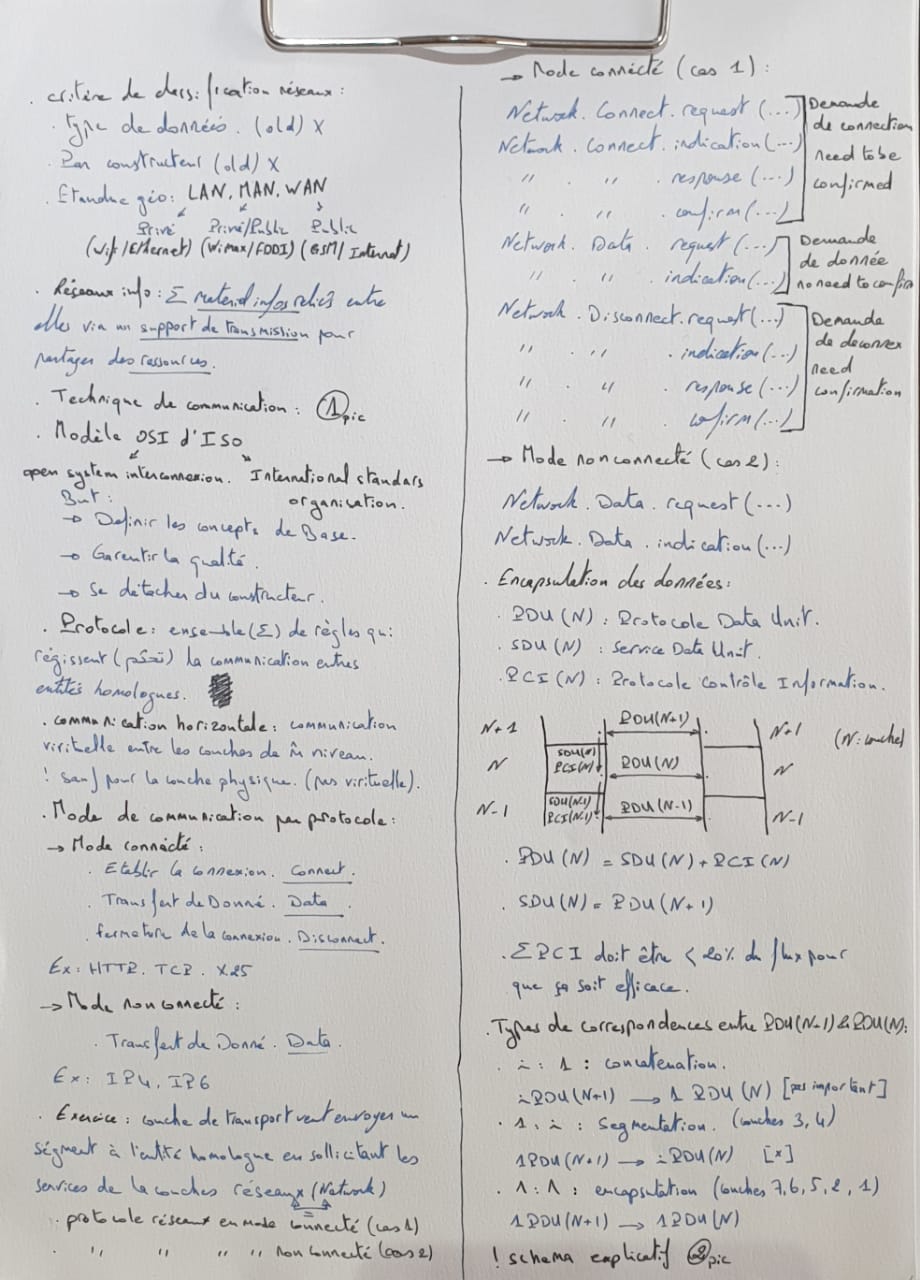 . critère de classification réseaux :
. type de données. (old) X
. Par constructeur (old) X
. Etandue géo: LAN, MAN, WAN
Privé Privé/Public Public
(Wifi/Ethernet) (Wimax/FDDI) (GSM/Internet)
. Réseaux info : Σ materiel infos reliés entre
elles via un support de transmission pour
partager des ressources.
. Technique de communication : ① pic
. Modèle OSI d'ISO
open system interconnexion. International standars
organication.
But :
→ Definir les concepts de Base.
→ Garentir la qualité.
→ Se détacher du constructeur.
. Protocole : ensemble (Σ) de règles qui
régissent (تحكم) la communication entres
entités homologues.
. communication horizontale : communication
virituelle entre les couches de m̂ niveau.
! sauf pour la couche physique. (pas virituelle).
. Mode de communication par protocole :
→ Mode connécté :
. Etablir la connexion. Connect.
. Transfert de Donné. Data.
. fermeture de la connexion. Disconnect.
Ex : HTTP. TCP. X25
→ Mode non connecté :
. Transfert de Donné. Data.
Ex : IP4, IP6
. Exercice : couche de transport veut envoyer un
ségment à l'entité homologue en sollicitant les
services de la couches réseaux (Network)
. protocole réseaux en mode connecté (cas 1)
. " " " " non connecté (cas 2)
→ Mode connécté (cas 1) :
Network. Connect. request (...)
Network. Connect. indication (...)
" . " . response (...)
" . " . confirm (...)
Demande
de connection
need to be
confirmed
Network. Data. request (...)
" . " . indication (...)
Demande
de donnée
no need to confirm
Network. Disconnect. request (...)
" . " . indication (...)
" . " . response (...)
" . " . confirm (...)
Demande
de deconnex
need
confirmation
→ Mode non connecté (cas 2) :
Network. Data. request (...)
Network. Data. indication (...)
. Encapsulation des données :
. PDU (N) : Protocole Data Unit.
. SDU (N) : Service Data Unit.
. PCI (N) : Protocole Contrôle Information.
N+1 PDU(N+1) N+1 (N: couche)
SDU(N)
N PCI(N) PDU(N) N
SDU(N-1)
N-1 PCI(N-1) PDU(N-1) N-1
. PDU (N) = SDU (N) + PCI (N)
. SDU (N) = PDU (N+1)
. Σ PCI doit être < 20% du flux pour
que ça soit efficace.
. Types de correspondences entre PDU(N-1) & PDU(N) :
. i : 1 : concatenation.
i PDU (N+1) → 1 PDU (N) [pas important]
. 1 : i : Segmentation. (couches 3, 4)
1 PDU (N+1) → i PDU (N) [x]
. 1 : 1 : encapsulation (couches 7, 6, 5, 2, 1)
1 PDU (N+1) → 1 PDU (N)
! schema explicatif ② pic